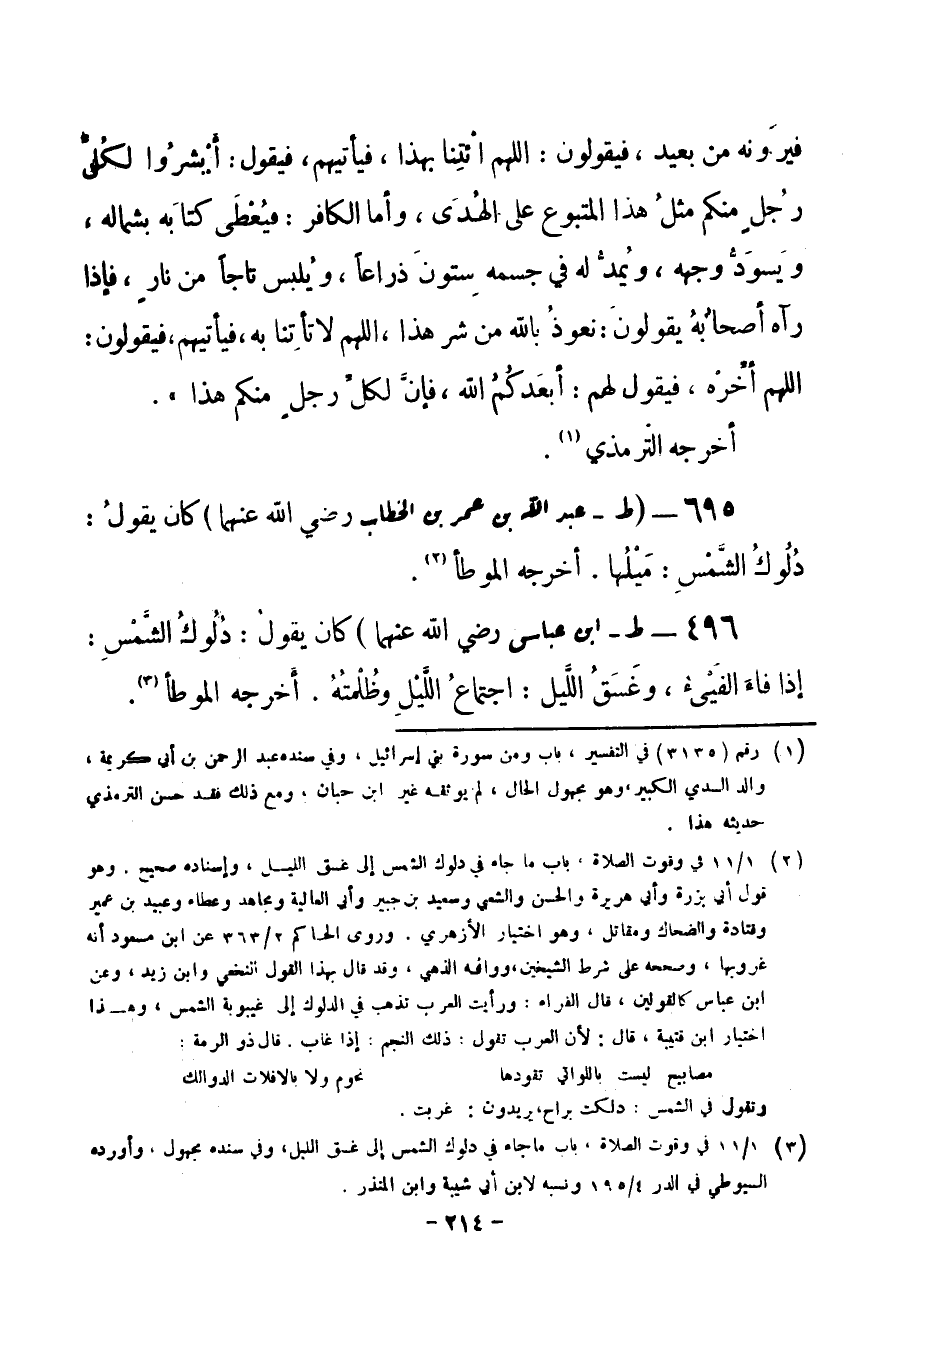 فيرَونه من بعيد ، فيقولون : اللهم ائْتِنا بهذا ، فيأتيهم، فيقول : أبْشِرُوا لكُلِّ
رجُلٍ منكم مثلُ هذا المتبوع على الهُدَى ، وأما الكافر : فيُعْطَى كتابَه بشماله ،
ويَسوَدُّ وجهه ، ويُمدُّ له في جسمه ستونَ ذراعاً ، ويُلبس تاجاً من نارٍ ، فإذا
رآه أصحابُهُ يقولونَ : نعوذُ بالله من شر هذا ، اللهم لا تأتِنا به، فيأتيهم، فيقولون :
اللهم أخِّرْه ، فيقول لهم : أبعَدكُمُ الله ، فإنَّ لكلِّ رجلٍ منكم هذا » .
أخرجه الترمذي (١) .
٦٩٥ — (ط - عبد الله بن عمر بن الخطاب رضي الله عنهما ) كان يقولُ :
دُلُوكُ الشَّمْسِ : مَيْلُها . أخرجه الموطأ (٢) .
٤٩٦ — ط - ابن عباس رضي الله عنهما ) كان يقولُ : دُلُوكُ الشَّمْسِ :
إذا فاءَ الفَيْءُ ، وغَسَقُ اللَّيل : اجتماعُ اللَّيْلِ وظُلْمتُهُ . أخرجه الموطأ (٣) .
(١) رقم (٣١٣٥) في التفسير ، باب ومن سورة بني إسرائيل ، وفي سنده عبد الرحمن بن أبي كريمة ،
والد السدي الكبير، وهو مجهول الحال ، لم يوثقه غير ابن حبان ، ومع ذلك فقد حسن الترمذي
حديثه هذا .
(٢) ١١/١ في وقوت الصلاة ، باب ما جاء في دلوك الشمس إلى غسق الليل ، وإسناده صحيح . وهو
قول أبي برزة وأبي هريرة والحسن والشعبي وسعيد بن جبير وأبي العالية ومجاهد وعطاء وعبيد بن عمير
وقتادة والضحاك ومقاتل ، وهو اختيار الأزهري . وروى الحاكم ٣٦٣/٢ عن ابن مسعود أنه
غروبها ، وصححه على شرط الشيخين، ووافقه الذهبي ، وقد قال بهذا القول النخعي وابن زيد ، وعن
ابن عباس كالقولين ، قال الفراء : ورأيت العرب تذهب في الدلوك إلى غيبوبة الشمس ، وهذا
اختيار ابن قتيبة ، قال : لأن العرب تقول : دلك النجم : إذا غاب . قال ذو الرمة :
مصابيح ليست باللواتي تقودها نجوم ولا بالافلات الدوالك
وتقول في الشمس : دلكت براح، يريدون : غربت .
(٣) ١١/١ في وقوت الصلاة ، باب ما جاء في دلوك الشمس إلى غسق الليل، وفي سنده مجهول ، وأورده
السيوطي في الدر ١٩٥/٤ ونسبه لابن أبي شيبة وابن المنذر .
- ٢١٤ -